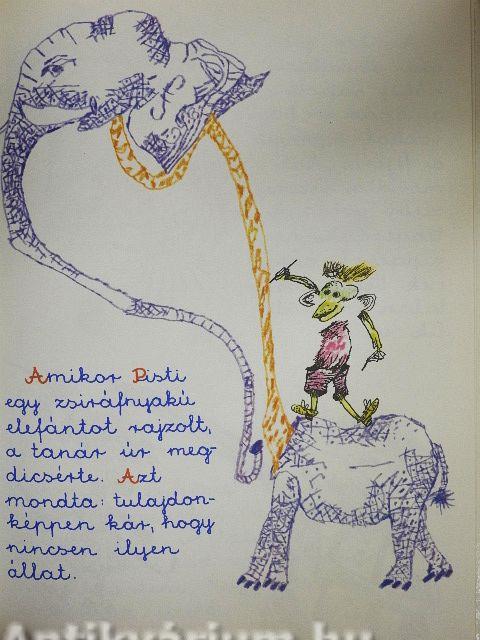 Amikor Pisti
egy zsiráfnyakú
elefántot rajzolt,
a tanár úr meg-
dicsérte. Azt
mondta: tulajdon-
képpen kár, hogy
nincsen ilyen
állat.
Antikvárium.hu